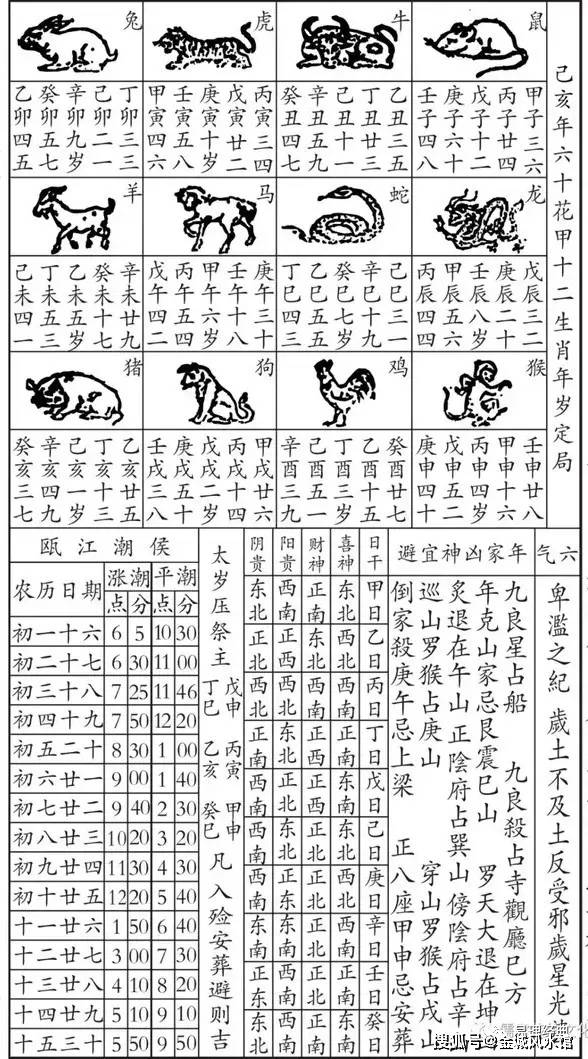 己亥年六十花甲十二生肖年岁定局
鼠
甲子三六
丙子廿四
戊子十二
庚子六十
壬子四八
牛
乙丑三五
丁丑廿三
己丑十一
辛丑五九
癸丑四七
虎
丙寅三四
戊寅廿二
庚寅十岁
壬寅五八
甲寅四六
兔
丁卯三三
己卯二一
辛卯九岁
癸卯五七
乙卯四五
龙
戊辰三二
庚辰二十
壬辰八岁
甲辰五六
丙辰四四
蛇
己巳三一
辛巳十九
癸巳七岁
乙巳五五
丁巳四三
马
庚午三十
壬午十八
甲午六岁
丙午五四
戊午四二
羊
辛未廿九
癸未十七
乙未五岁
丁未五三
己未四一
猴
壬申廿八
甲申十六
丙申四岁
戊申五二
庚申四十
鸡
癸酉廿七
乙酉十五
丁酉三岁
己酉五一
辛酉三九
狗
甲戌廿六
丙戌十四
戊戌二岁
庚戌五十
壬戌三八
猪
乙亥廿五
丁亥十三
己亥一岁
辛亥四九
癸亥三七
六气
卑濫之紀 歲土不及土反受邪歲星光
年家凶神宜避
九良星占船 九良殺占寺觀廳巳方
年克山家忌艮震巳山 罗天大退在坤
炙退在午山正陰府占巽山傍陰府占辛
巡山罗猴占庚山 穿山罗猴占戌山
倒家殺庚午忌上梁 正八座甲申忌安葬
日干 喜神 财神 阳贵 阴贵
甲日 东北
乙日 西北
丙日 西南
丁日 正南
戊日 东南
己日 东北
庚日 西北
辛日 西南
壬日 正南
癸日 东南
太岁压祭主
戊申 丁巳
丙寅 乙亥
甲申 癸巳
凡入殓安葬避则吉
瓯江潮候
农历日期 涨潮 点分 平潮 点分
初一十六 6 5 10 30
初二十七 6 30 11 00
初三十八 7 25 11 46
初四十九 7 50 12 20
初五二十 8 30 1 00
初六廿一 9 00 1 40
初七廿二 9 40 2 30
初八廿三 10 20 3 20
初九廿四 11 30 4 30
初十廿五 12 20 5 40
十一廿六 1 50 6 40
十二廿七 3 00 7 30
十三廿八 4 10 8 20
十四廿九 5 10 9 10
十五三十 5 50 9 50
搜狐号@金城风水馆